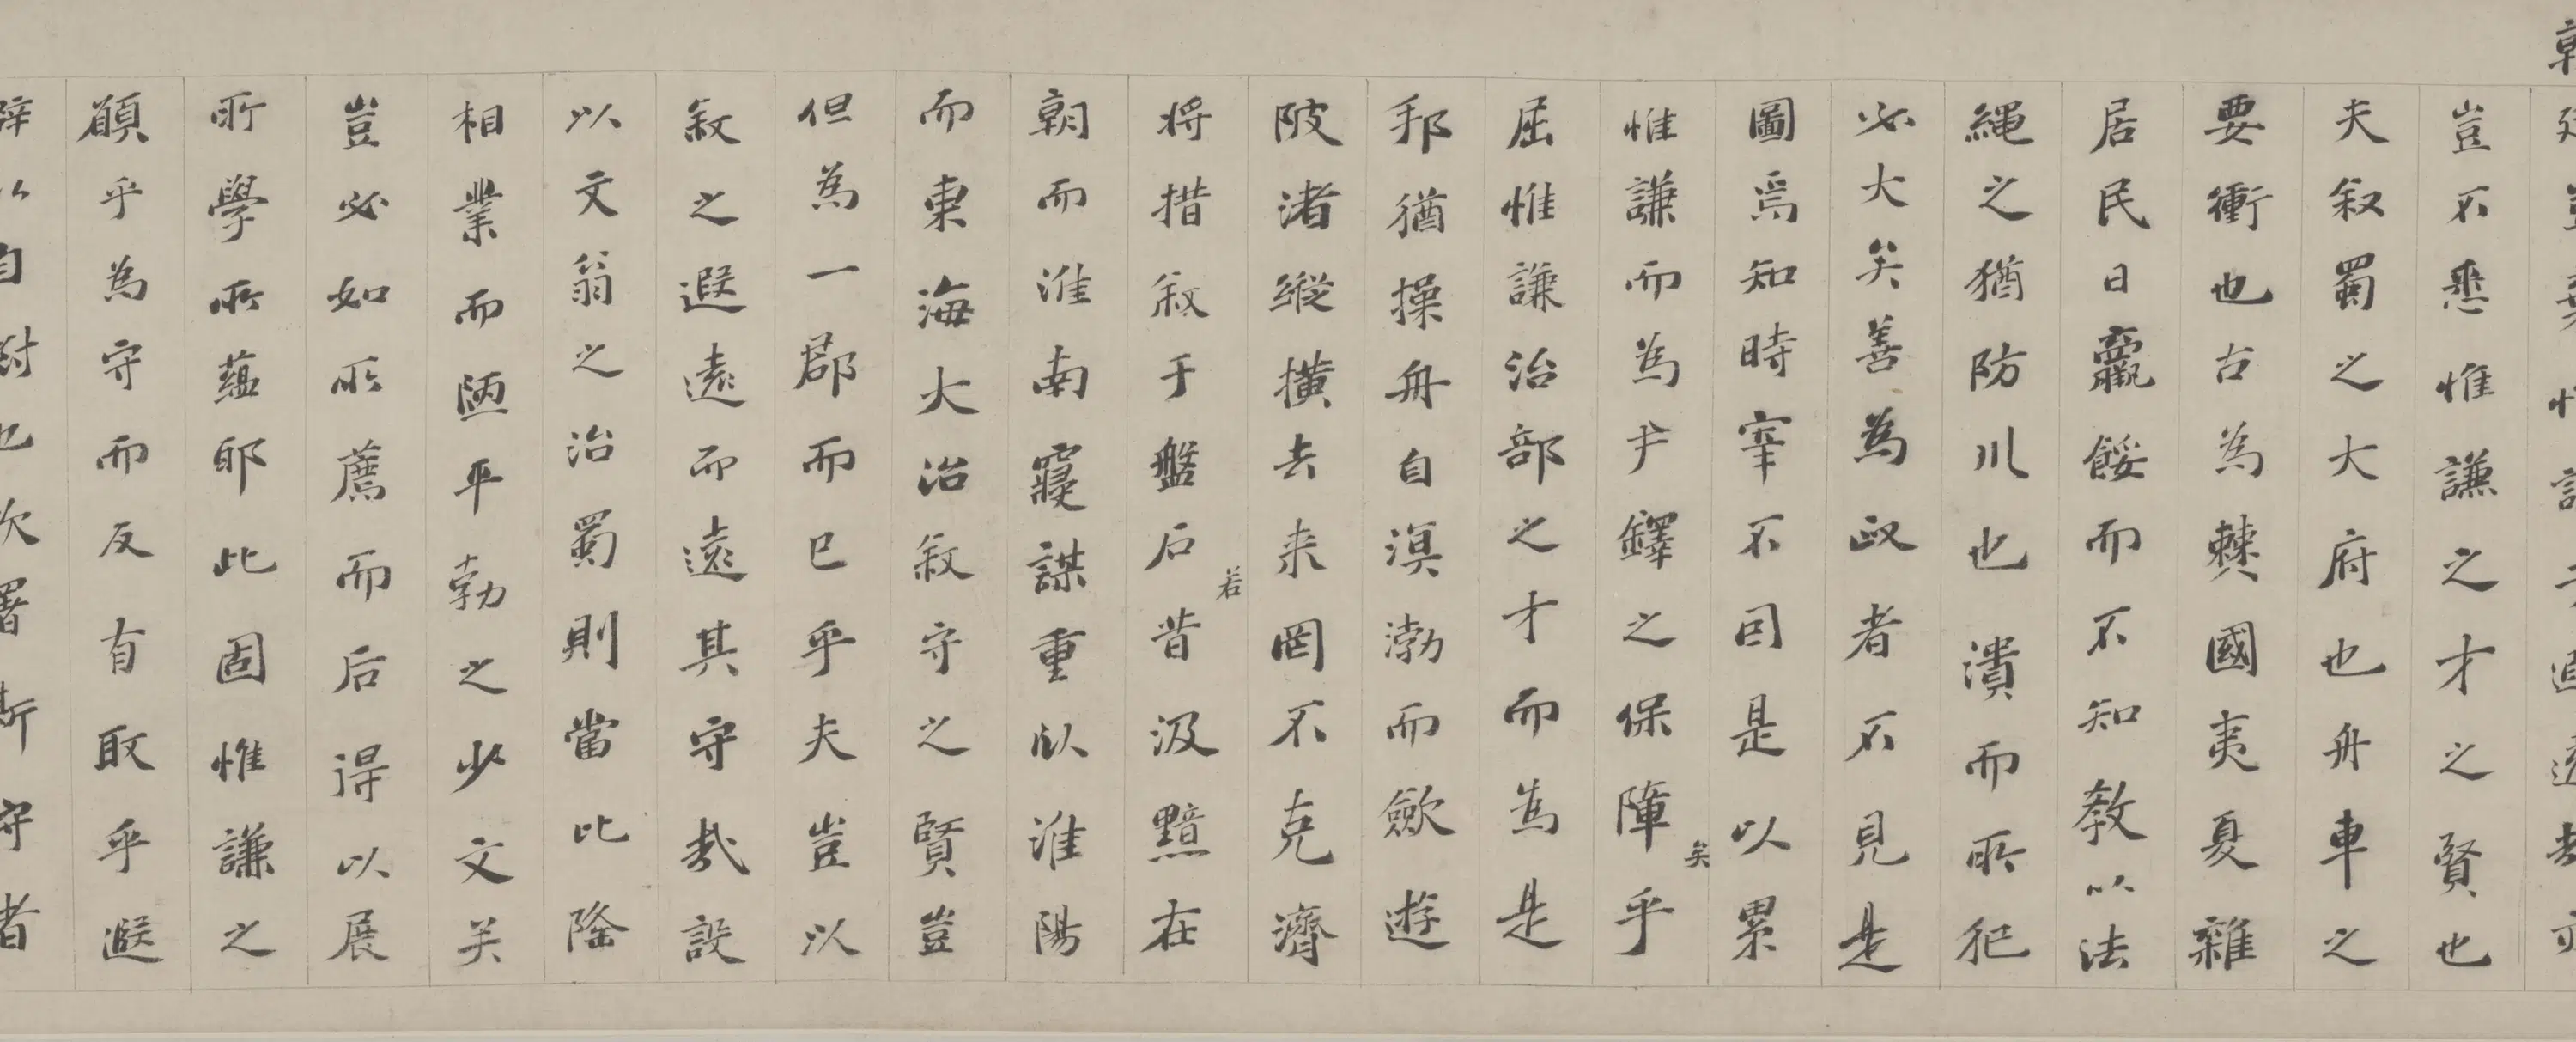 豈不悉惟謙之才之賢也
夫叙蜀之大府也舟車之
要衝也古為僰國夷夏雜
居民日羸餒而不知教以法
繩之猶防川也潰而所犯
必大矣善為政者不見是
圖焉知時宰不因是以累
惟謙而為尹鐸之保障矣乎
屈惟謙治部之才而為是
邦猶操舟自溟渤而歛遊
陂渚縱橫去来罔不克濟
将措叙于盤石若昔汲黯在
朝而淮南寢謀重臥淮陽
而東海大治叙守之賢豈
但為一郡而已乎夫豈以
叙之遐遠而遠其守哉設
以文翁之治蜀則當比隆
相業而陋平勃之少文矣
豈必如所薦而后得以展
所學所蘊耶此固惟謙之
願乎為守而反有取乎遐